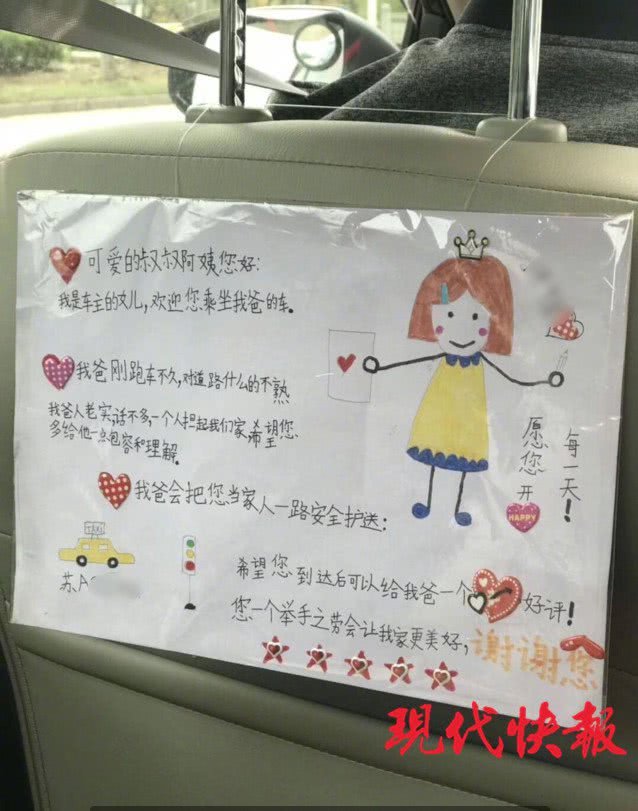 可爱的叔叔阿姨您好:
我是车主的女儿,欢迎您乘坐我爸的车。
我爸刚跑车不久,对道路什么的不熟
我爸人老实,话不多,一个人担起我们家希望您
多给他一点包容和理解。
我爸会把您当家人一路安全护送:
愿您开
HAPPY
每一天!
TAXI
苏A
希望您到达后可以给我爸一个好评!
您一个举手之劳会让我家更美好,谢谢您
现代快報